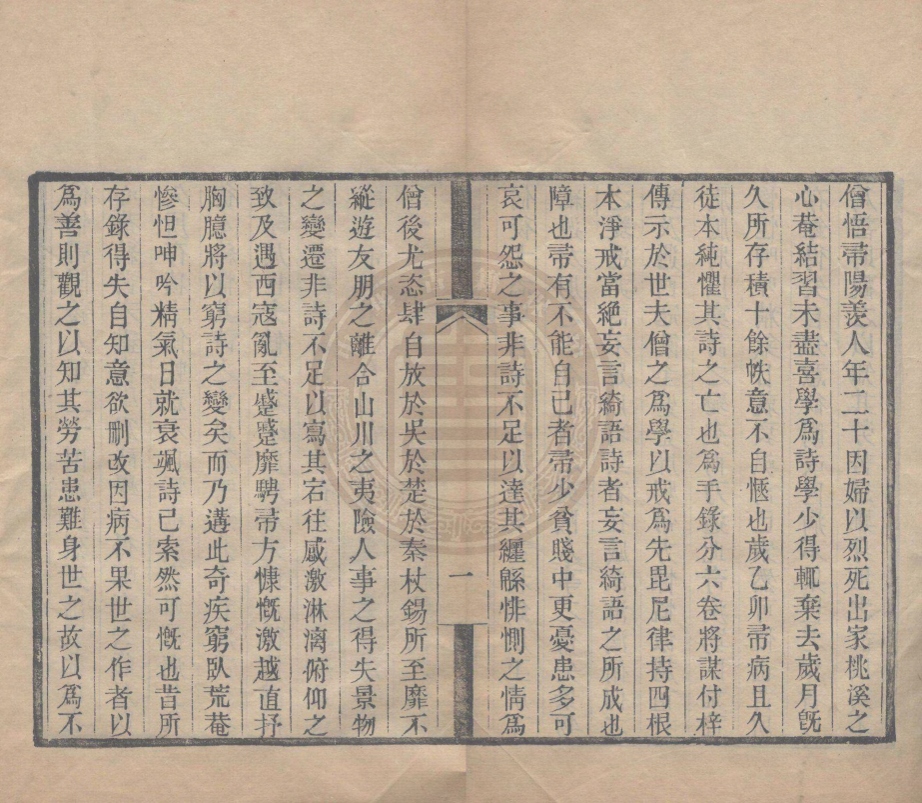 僧悟帚陽羨人年二十因婦以烈死出家桃溪之
心菴結習未盡喜學爲詩學少得輒棄去歲月旣
久所存積十餘帙意不自愜也歲乙卯帚病且久
徒本純懼其詩之亡也爲手錄分六卷將謀付梓
傳示於世夫僧之爲學以戒爲先毘尼律持四根
本淨戒當絕妄言綺語詩者妄言綺語之所成也
障也帚有不能自已者帚少貧賤中更憂患多可
哀可怨之事非詩不足以達其纏緜悱惻之情爲
一
僧後尤恣肆自放於吳於楚於秦杖錫所至靡不
縱遊友朋之離合山川之夷險人事之得失景物
之變遷非詩不足以寫其宕往感激淋漓俯仰之
致及遇西寇亂至蹙蹙靡騁帚方慷慨激越直抒
胸臆將以窮詩之變矣而乃遘此奇疾窮臥荒菴
慘怛呻吟精氣日就衰颯詩已索然可慨也昔所
存錄得失自知意欲刪改因病不果世之作者以
爲善則觀之以知其勞苦患難身世之故以爲不